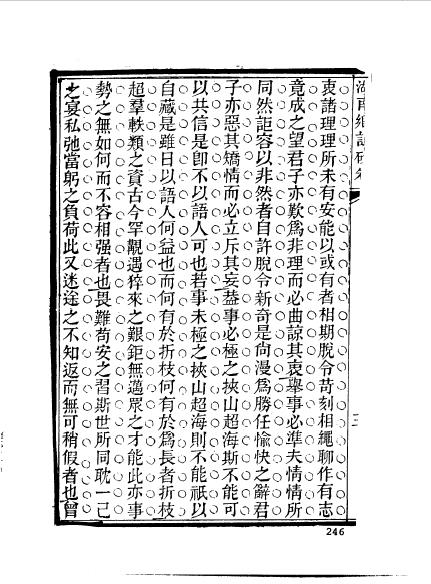 衷諸理理所未有安能以或有者相期脫令苛刻相繩聊作有志
竟成之望君子亦歎爲非理而必曲諒其衷舉事必準夫情情所
同然詎容以非然者自許脫令新奇是尙漫爲勝任愉快之辭君
子亦惡其矯情而必立斥其妄葢事必極之挾山超海斯不能可
以共信是卽不以語人可也若事未極之挾山超海則不能祇以
自藏是雖日以語人何益也而何有於折枝何有於爲長者折枝
超羣軼類之資古今罕觀遇猝來之艱鉅無邁眾之才能此亦事
勢之無如何而不容相强者也畏難苟安之習斯世所同耽一己
之宴私弛當躬之負荷此又迷途之不知返而無可稍假者也曾
三
246